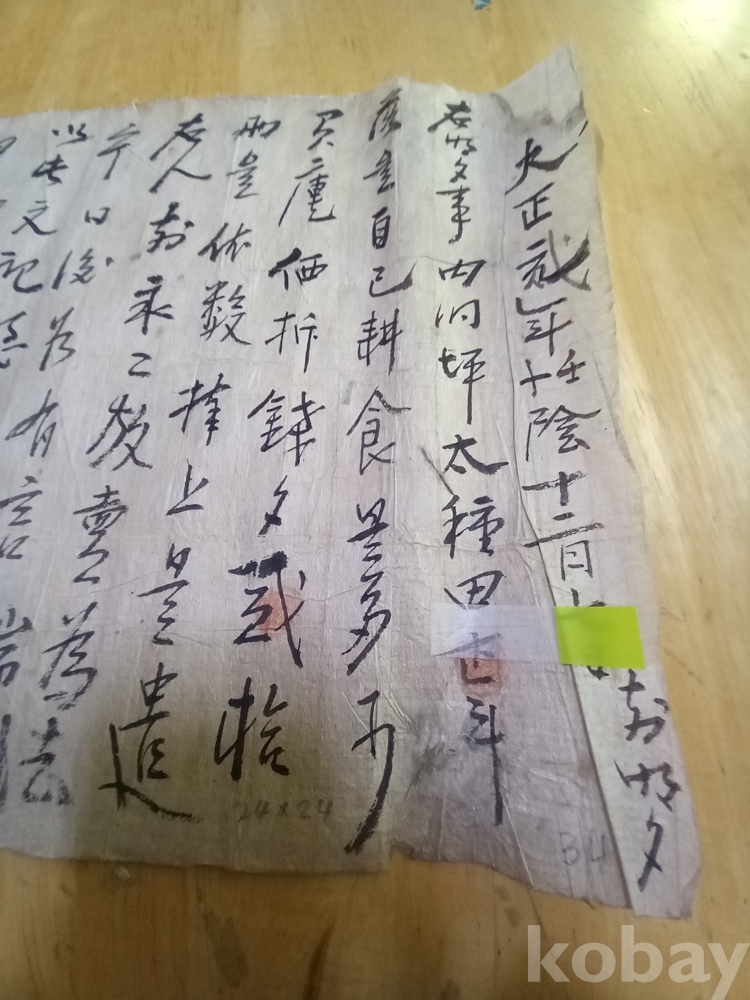 大正貳年 陰十二月 前明文
右明文事內洞坪太種田 斗
落是自己耕食是多可
買 価折錢文貳拾
兩是依数捧上是遣
右人前永〻放賣為去
乎日後若有言端則
以此文記憑
24×24
34
kobay